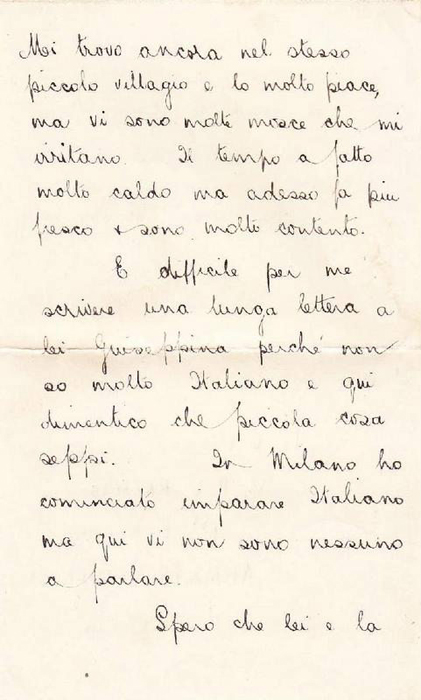 Mi trovo ancora nel stesso
piccolo villagio e lo molto piace,
ma vi sono molte mosce che mi
irritano. Il tempo a fatto
molto caldo ma adesso fa piu
fresco & sono molto contento.
E difficile per me
scrivere una lunga lettera a
lei Guiseppina perché non
so molto Italiano e qui
dimentico che piccola cosa
seppi. In Milano ho
cominciato imparare Italiano
ma qui vi non sono nessuno
a parlare.
Spero che lei e la